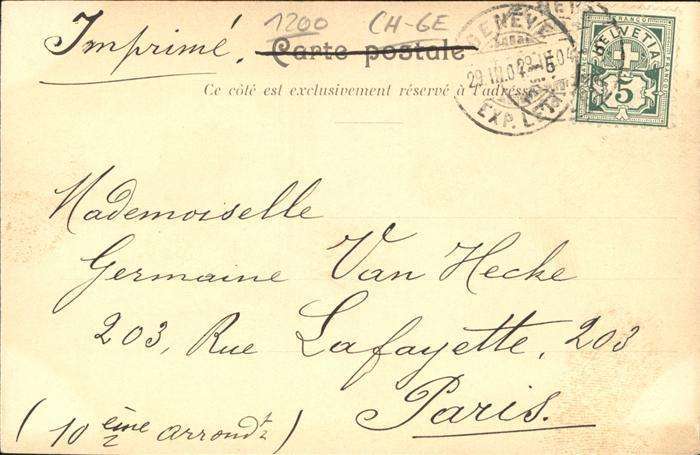 1200 CH-GE
Imprimé. Carte postale
Ce côté est exclusivement réservé à l'adresse
GENÈVE
29.III.04
EXP. L
FRANCO
HELVETIA
5
Mademoiselle
Germaine Van Hecke
203, Rue Lafayette, 203
Paris.
(10 ème arrondt)